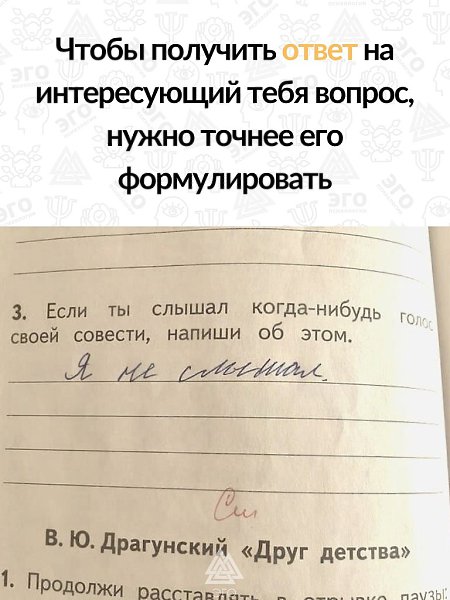 Чтобы получить ответ на
интересующий тебя вопрос,
нужно точнее его
формулировать
3. Если ты слышал когда-нибудь голос
своей совести, напиши об этом.
Я не слышал.
См
В. Ю. Драгунский «Друг детства»
1. Продолжи расставлять в отрывке паузы:
эго